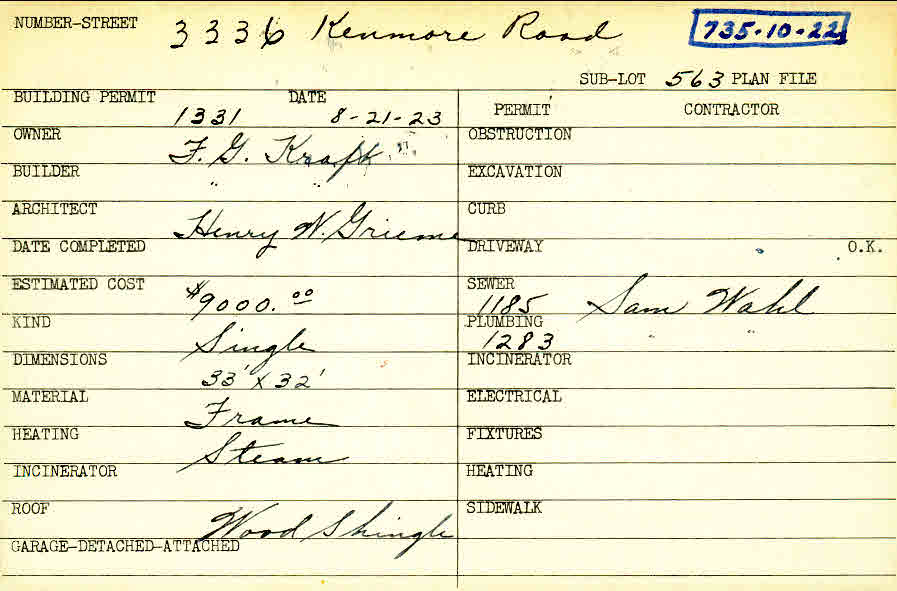 NUMBER-STREET 3336 Kenmore Road 735-10-22
SUB-LOT 563 PLAN FILE
BUILDING PERMIT 1331 DATE 8-21-23
PERMIT CONTRACTOR
OWNER F. G. Kraft
OBSTRUCTION
BUILDER " "
EXCAVATION
ARCHITECT Henry W. Grieme
CURB
DATE COMPLETED
DRIVEWAY O.K.
ESTIMATED COST $9000.00
SEWER 1185 Sam Wahl
KIND Single
PLUMBING 1283 " "
DIMENSIONS 33' x 32'
INCINERATOR
MATERIAL Frame
ELECTRICAL
HEATING Steam
FIXTURES
INCINERATOR
HEATING
ROOF Wood Shingle
SIDEWALK
GARAGE-DETACHED-ATTACHED